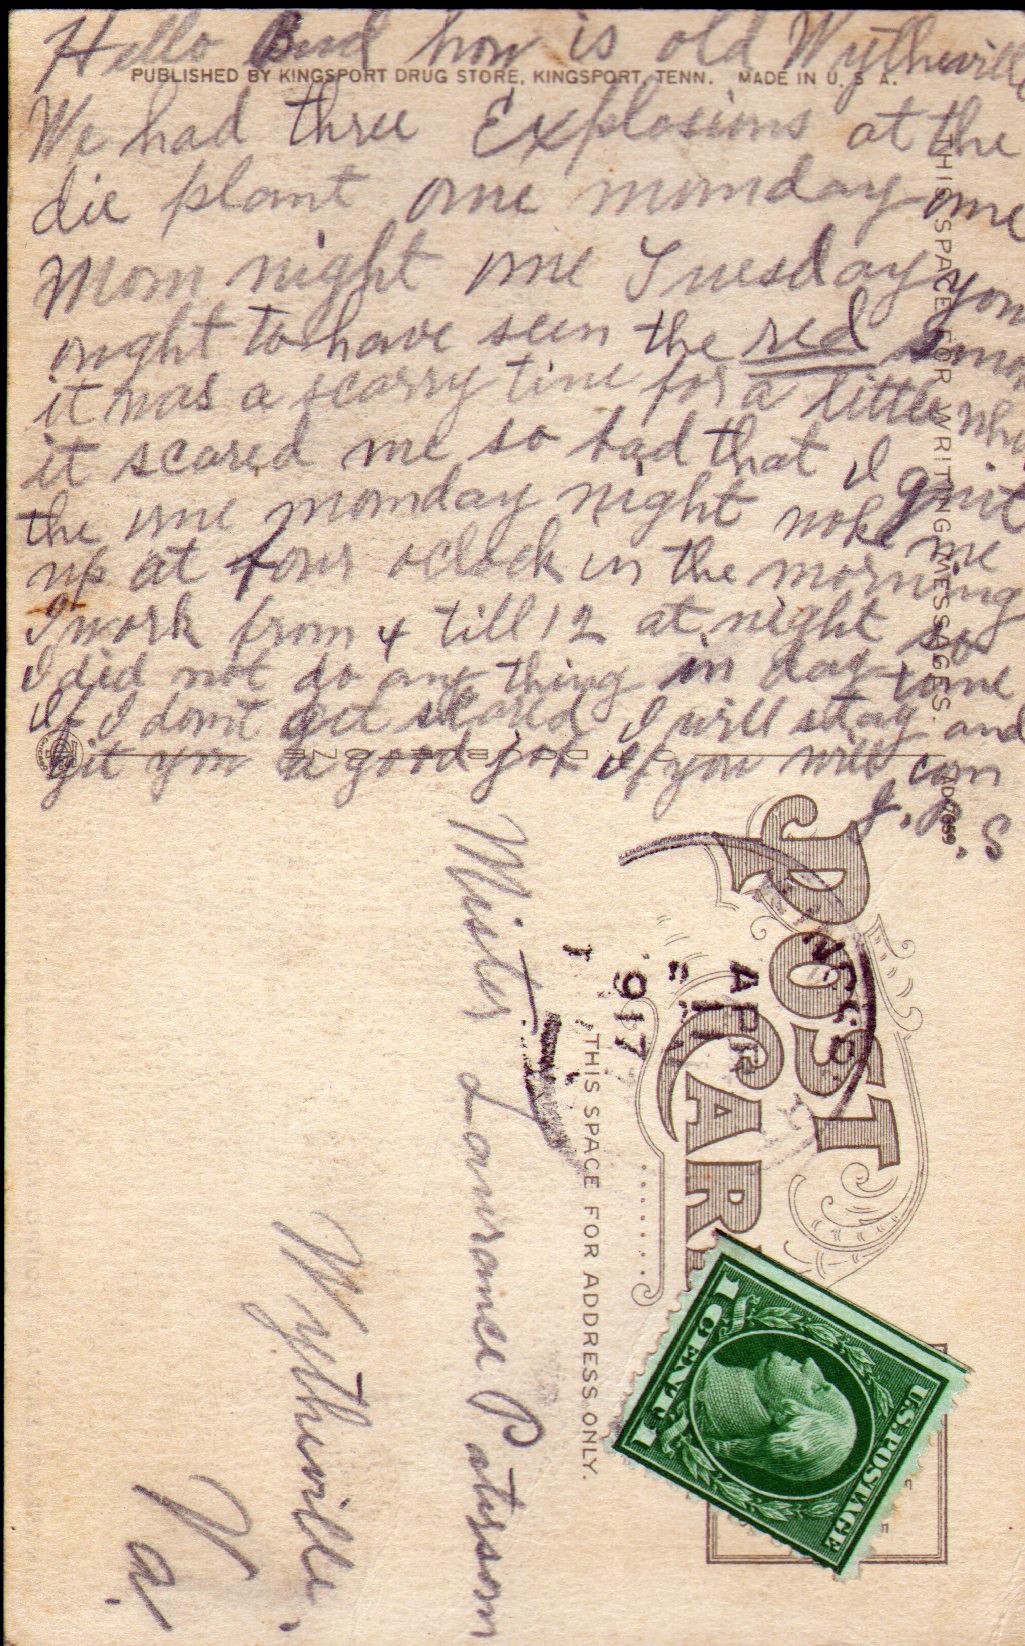 Hello Bud how is old Wytheville
PUBLISHED BY KINGSPORT DRUG STORE, KINGSPORT, TENN. MADE IN U. S. A.
We had three Explosions at the
die plant one monday one
Mon night one Tuesday you
ought to have seen the red smo
it was a scarry time for a little whi
it scared me so bad that I quit
the one monday night woke me
up at four oclock in the morning
I work from 4 till 12 at night so
I did not do any thing in day time
If I dont get scared I will stay and
git you a good job if you will com
J. S
THIS SPACE FOR WRITING MESSAGES.
POST CAR
APR
11
917
THIS SPACE FOR ADDRESS ONLY.
U.S. POSTAGE
1 CENT 1
Mister Lawrance Paterson
Wytheville,
Va.